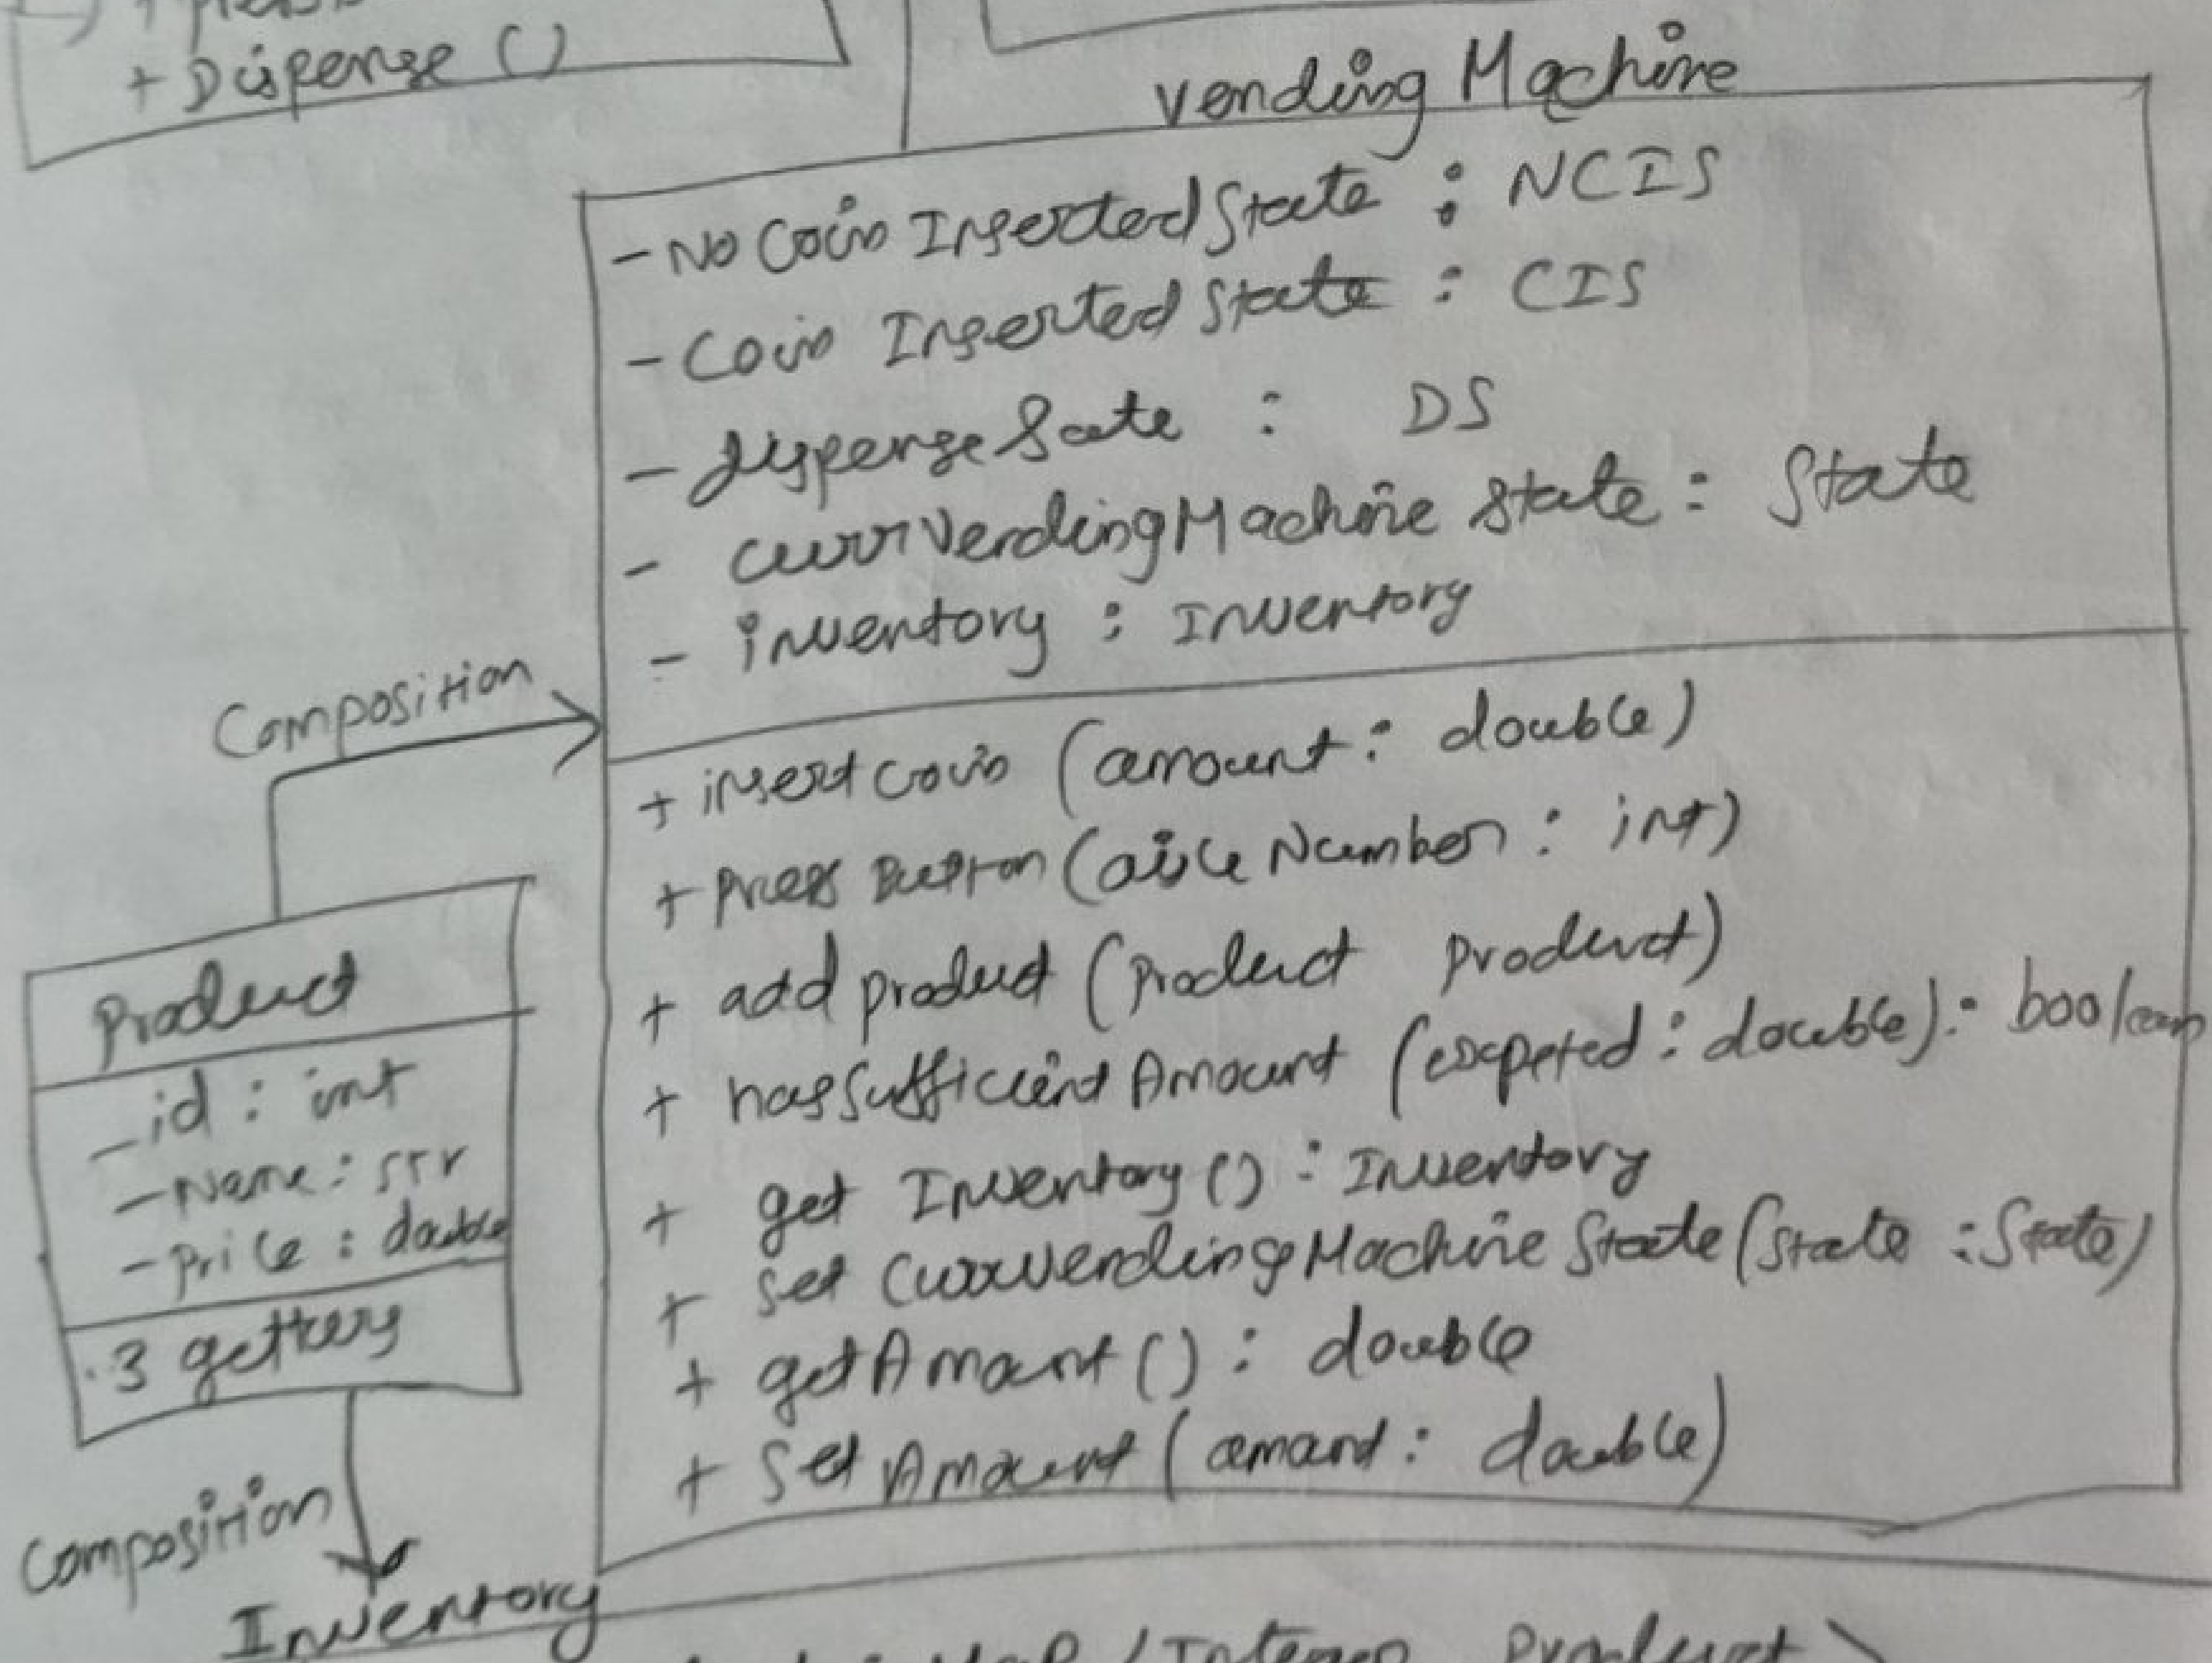 + Dispense ()
Vending Machine
- No Coin Inserted State : NCIS
- Coin Inserted State : CIS
- dispense Sate : DS
- curr Vending Machine State : State
- inventory : Inventory
Composition
+ insert coin (amount : double)
+ Press Button (aisle Number : int)
+ add product (product product)
+ has Sufficient Amount (expeted : double) : boolean
+ get Inventory () : Inventory
+ set CurrVending Machine State (State : State)
+ get Amount () : double
+ Set Amount (amount : double)
Product
- id : int
- Name : str
- price : double
. 3 getters
Composition
Inventory
Product >